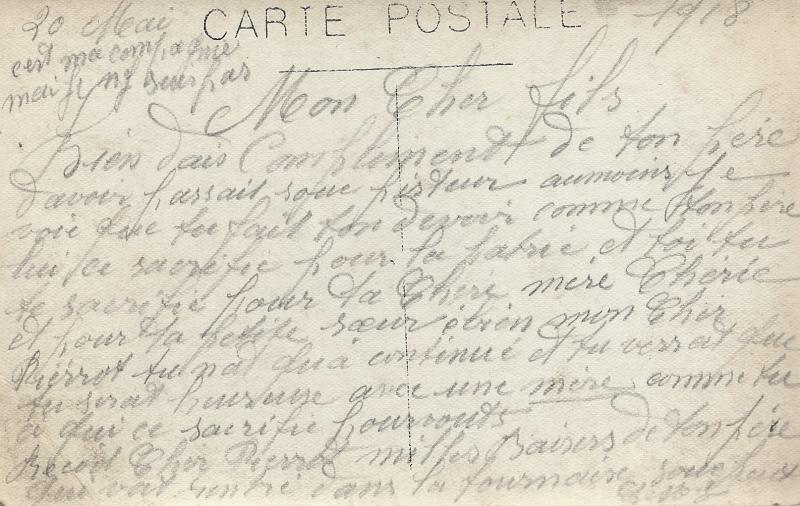 CARTE POSTALE
20 Mai 1918
cest ma compagnie
mai ny suis pas
Mon Cher fils
bien dais Compliment de ton père
davoir passait soue aumoins je
voie que tu fait ton devoir comme ton père
lui ce sacrifie pour la patrie et toi tu
te sacrifie pour ta Cher mère Chérie
et pour ta petite sœur ébien mon Cher
Pierrot tu nat qua continué et tu verrat que
tu serat heureuse avec une mère comme tu
a qui ce sacrifie pour vouts
Recoit Cher Pierrot milles Baisers de ton père
qui vat rentré dans la fournaise